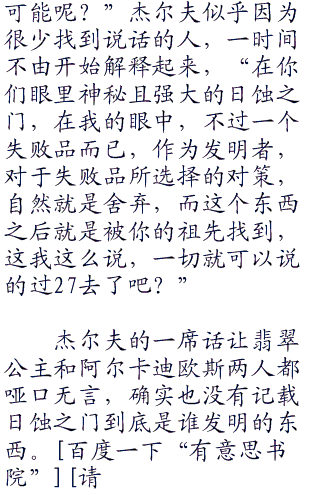 可能呢？”杰尔夫似乎因为
很少找到说话的人，一时间
不由开始解释起来，“在你
们眼里神秘且强大的日蚀之
门，在我的眼中，不过一个
失败品而已，作为发明者，
对于失败品所选择的对策，
自然就是舍弃，而这个东西
之后就是被你的祖先找到，
这我这么说，一切就可以说
的过27去了吧？”
杰尔夫的一席话让翡翠
公主和阿尔卡迪欧斯两人都
哑口无言，确实也没有记载
日蚀之门到底是谁发明的东
西。[百度一下“有意思书
院”][请